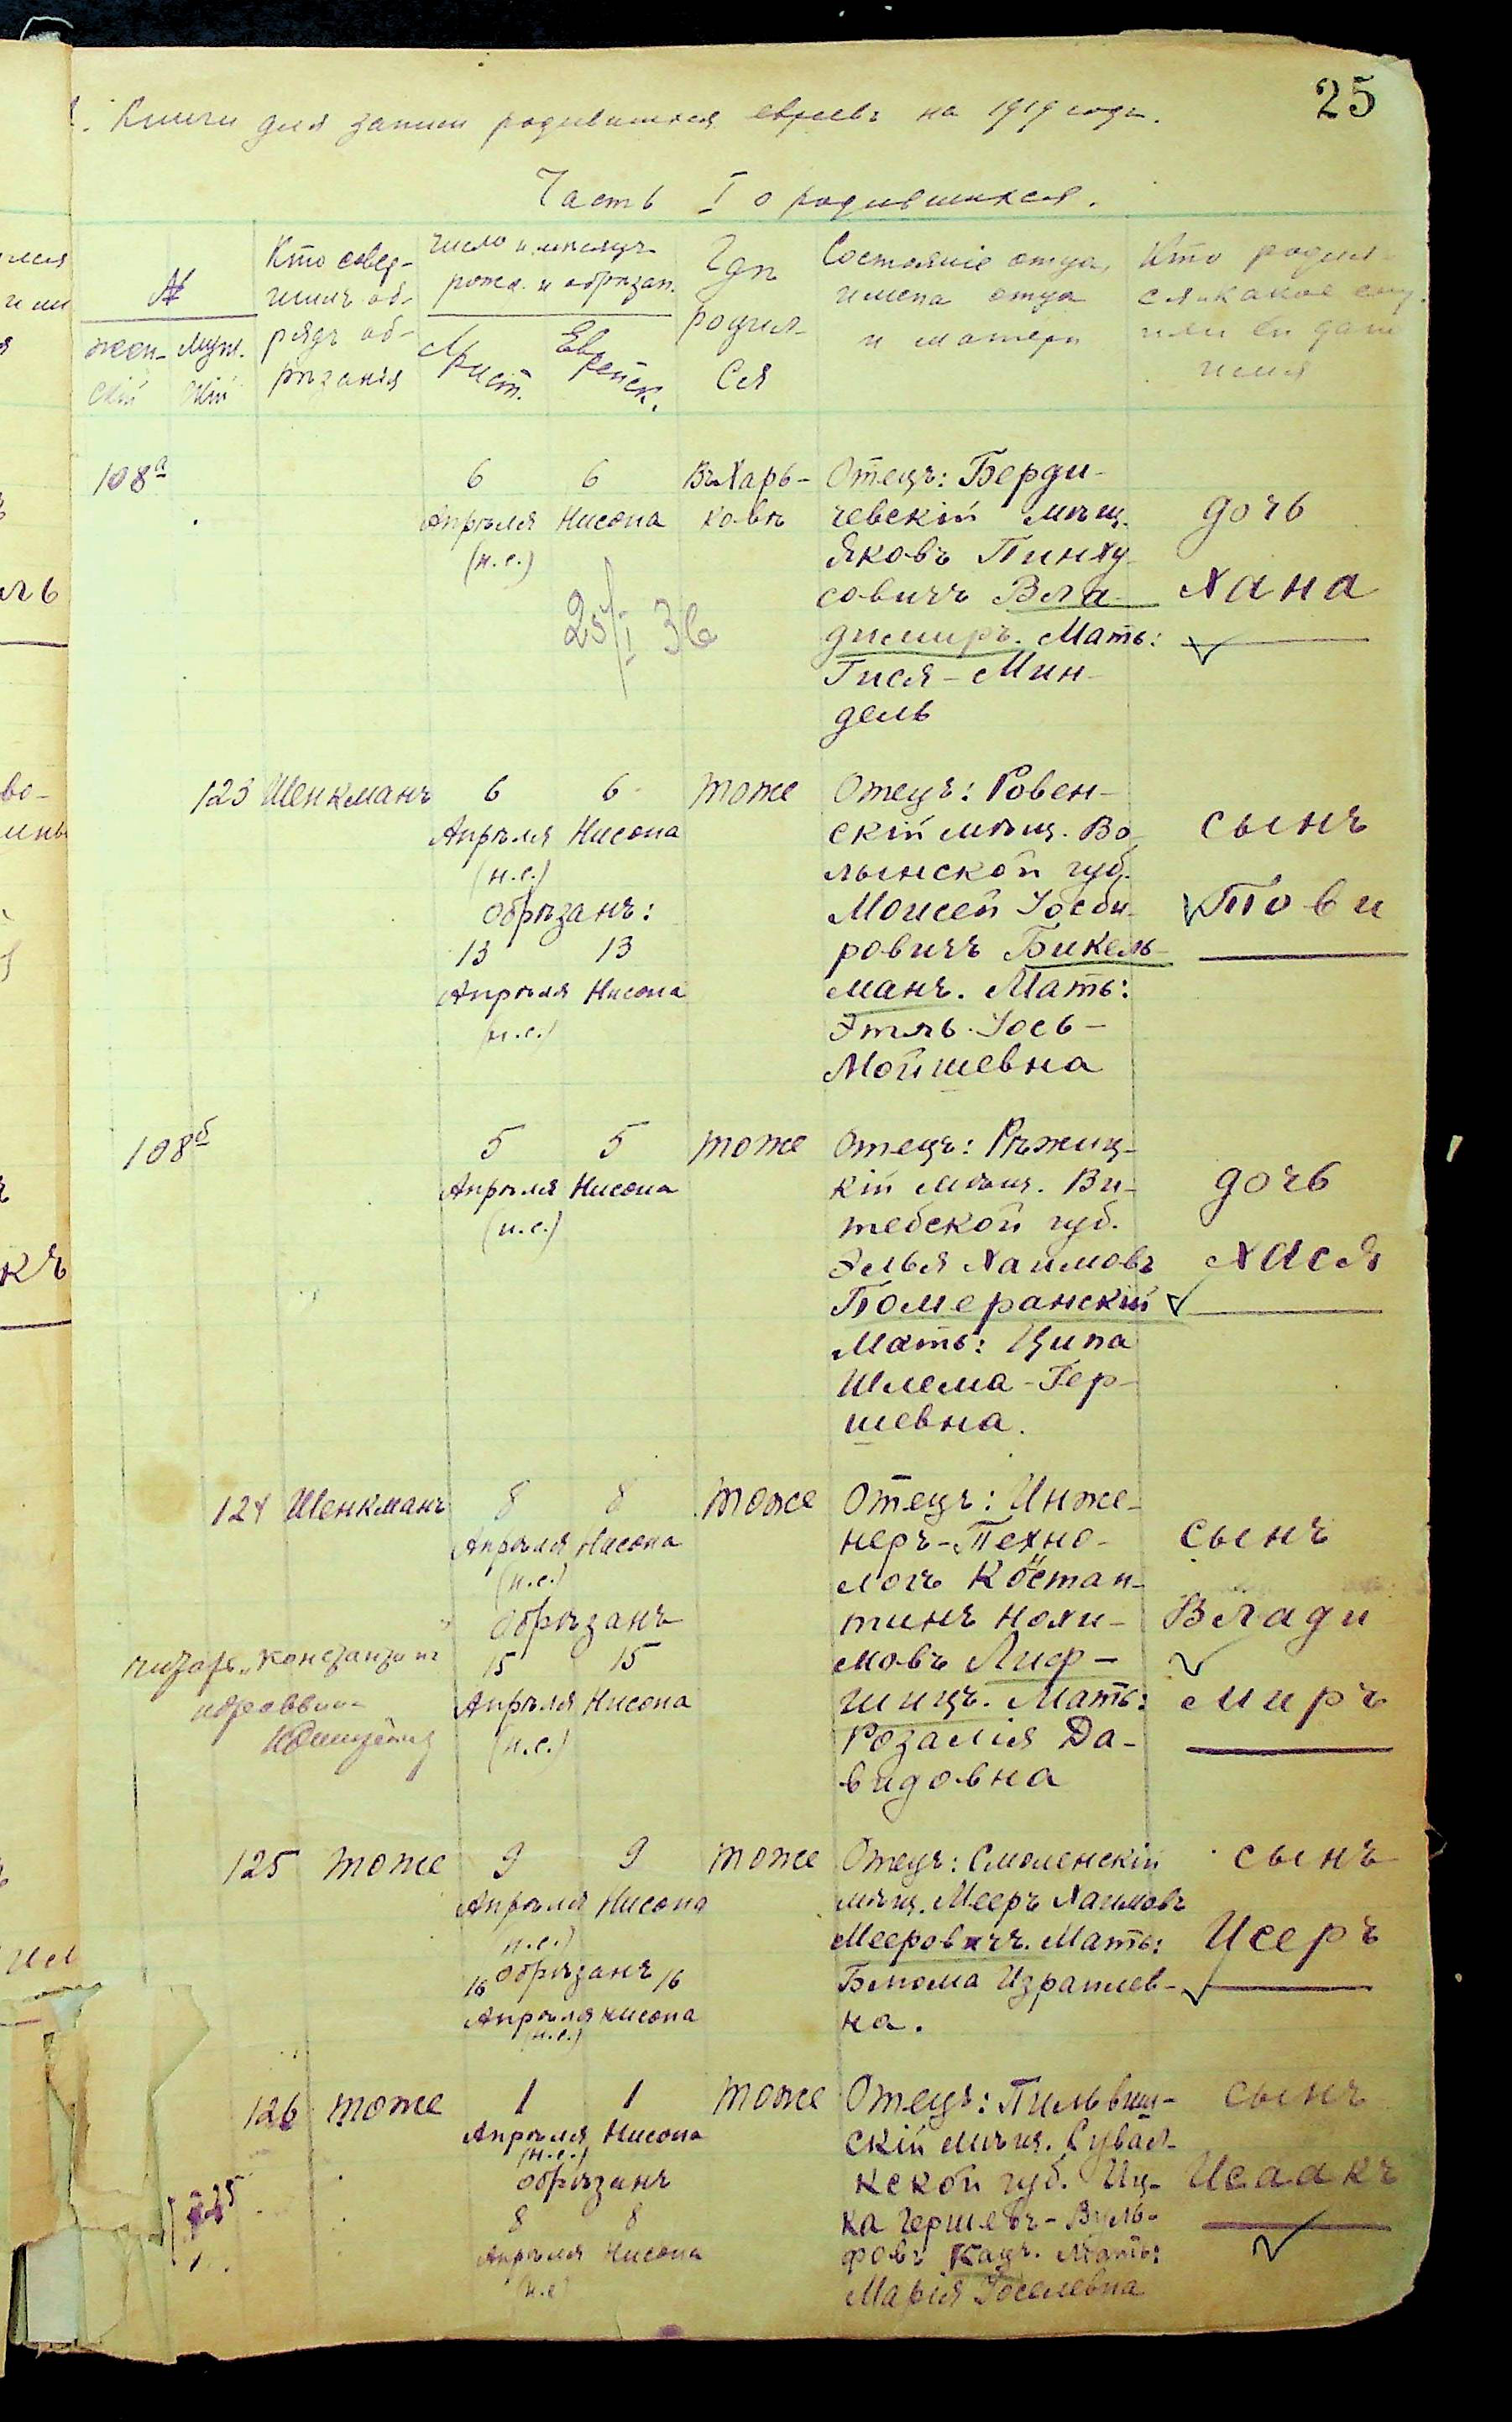 25
Книги для записи родившихся евреевъ на 1919 годъ.
Часть I о родившихся.
№
жен-
скій
муж.
скій
Кто совер-
шилъ об-
рядъ об-
рѣзанія
Число и мѣсяцъ
рожд. и обрѣзан.
Христ.
Еврейск.
Гдѣ
родил-
ся
Состояніе отца,
имена отца
и матери
Кто родил-
ся и какое ему
или ей дано
имя
108а
6 6
Апрѣля Нисона
(н.с.)
25/I 36
Въ Харь-
ковѣ
Отецъ: Берди-
чевскій мѣщ.
Яковъ Пинху-
совичъ Вла-
димиръ. Мать:
Гися-Мин-
дель
дочь
Хана
123 Шенкманъ
6 6
Апрѣля Нисона
(н.с.)
Обрѣзанъ:
13 13
Апрѣля Нисона
(н.с.)
тоже
Отецъ: Ровен-
скій мѣщ. Во-
лынской губ.
Моисей
ровичъ Бикель-
манъ. Мать:
Этль Іось-
Мойшевна
сынъ
Тови
108б
5 5
Апрѣля Нисона
(н.с.)
тоже
Отецъ: Рѣжиц-
кій мѣщ. Ви-
тебской губ.
Элья Хаимовъ
Померанскій
Мать: Ципа
Шлема-Гер-
шевна.
дочь
Хася
124 Шенкманъ
8 8
Апрѣля Нисона
(н.с.)
Обрѣзанъ
15 15
Апрѣля Нисона
(н.с.)
тоже
Отецъ: Инже-
неръ-Техно-
логъ Костан-
н
тинъ Нохи-
мовъ Лиф-
шицъ. Мать:
Розалія Да-
видовна
сынъ
Влади
миръ
125 тоже
9 9
Апрѣля Нисона
н.с.)
16 Обрѣзанъ 16
Апрѣля Нисона
(н.с.)
тоже
Отецъ: Смоленскій
мѣщ. Мееръ Хаимовъ
Мееровичъ. Мать:
Блюма Израилев-
на.
сынъ
Исеръ
126 тоже
1 1
Апрѣля Нисона
(н.с.)
Обрѣзанъ
8 8
Апрѣля Нисона
(н.с)
тоже
Отецъ: Пильвиш-
скій мѣщ. Сувал-
кской губ. Иц-
ка Гершевъ-Вуль-
фовъ Кацъ. Мать:
Марія Іоселевна
сынъ
Исаакъ